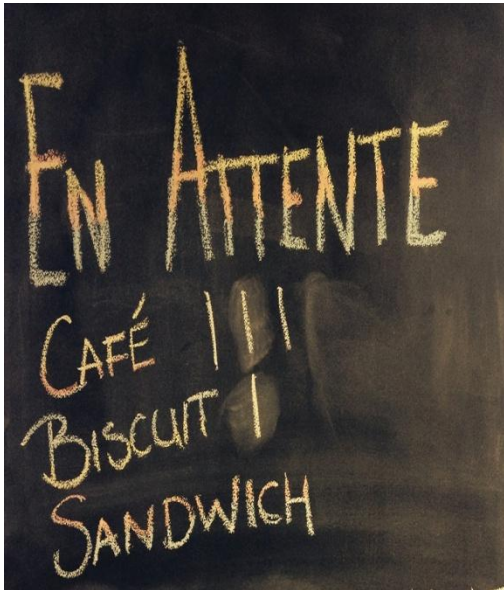 EN ATTENTE
CAFÉ III
BISCUIT I
SANDWICH